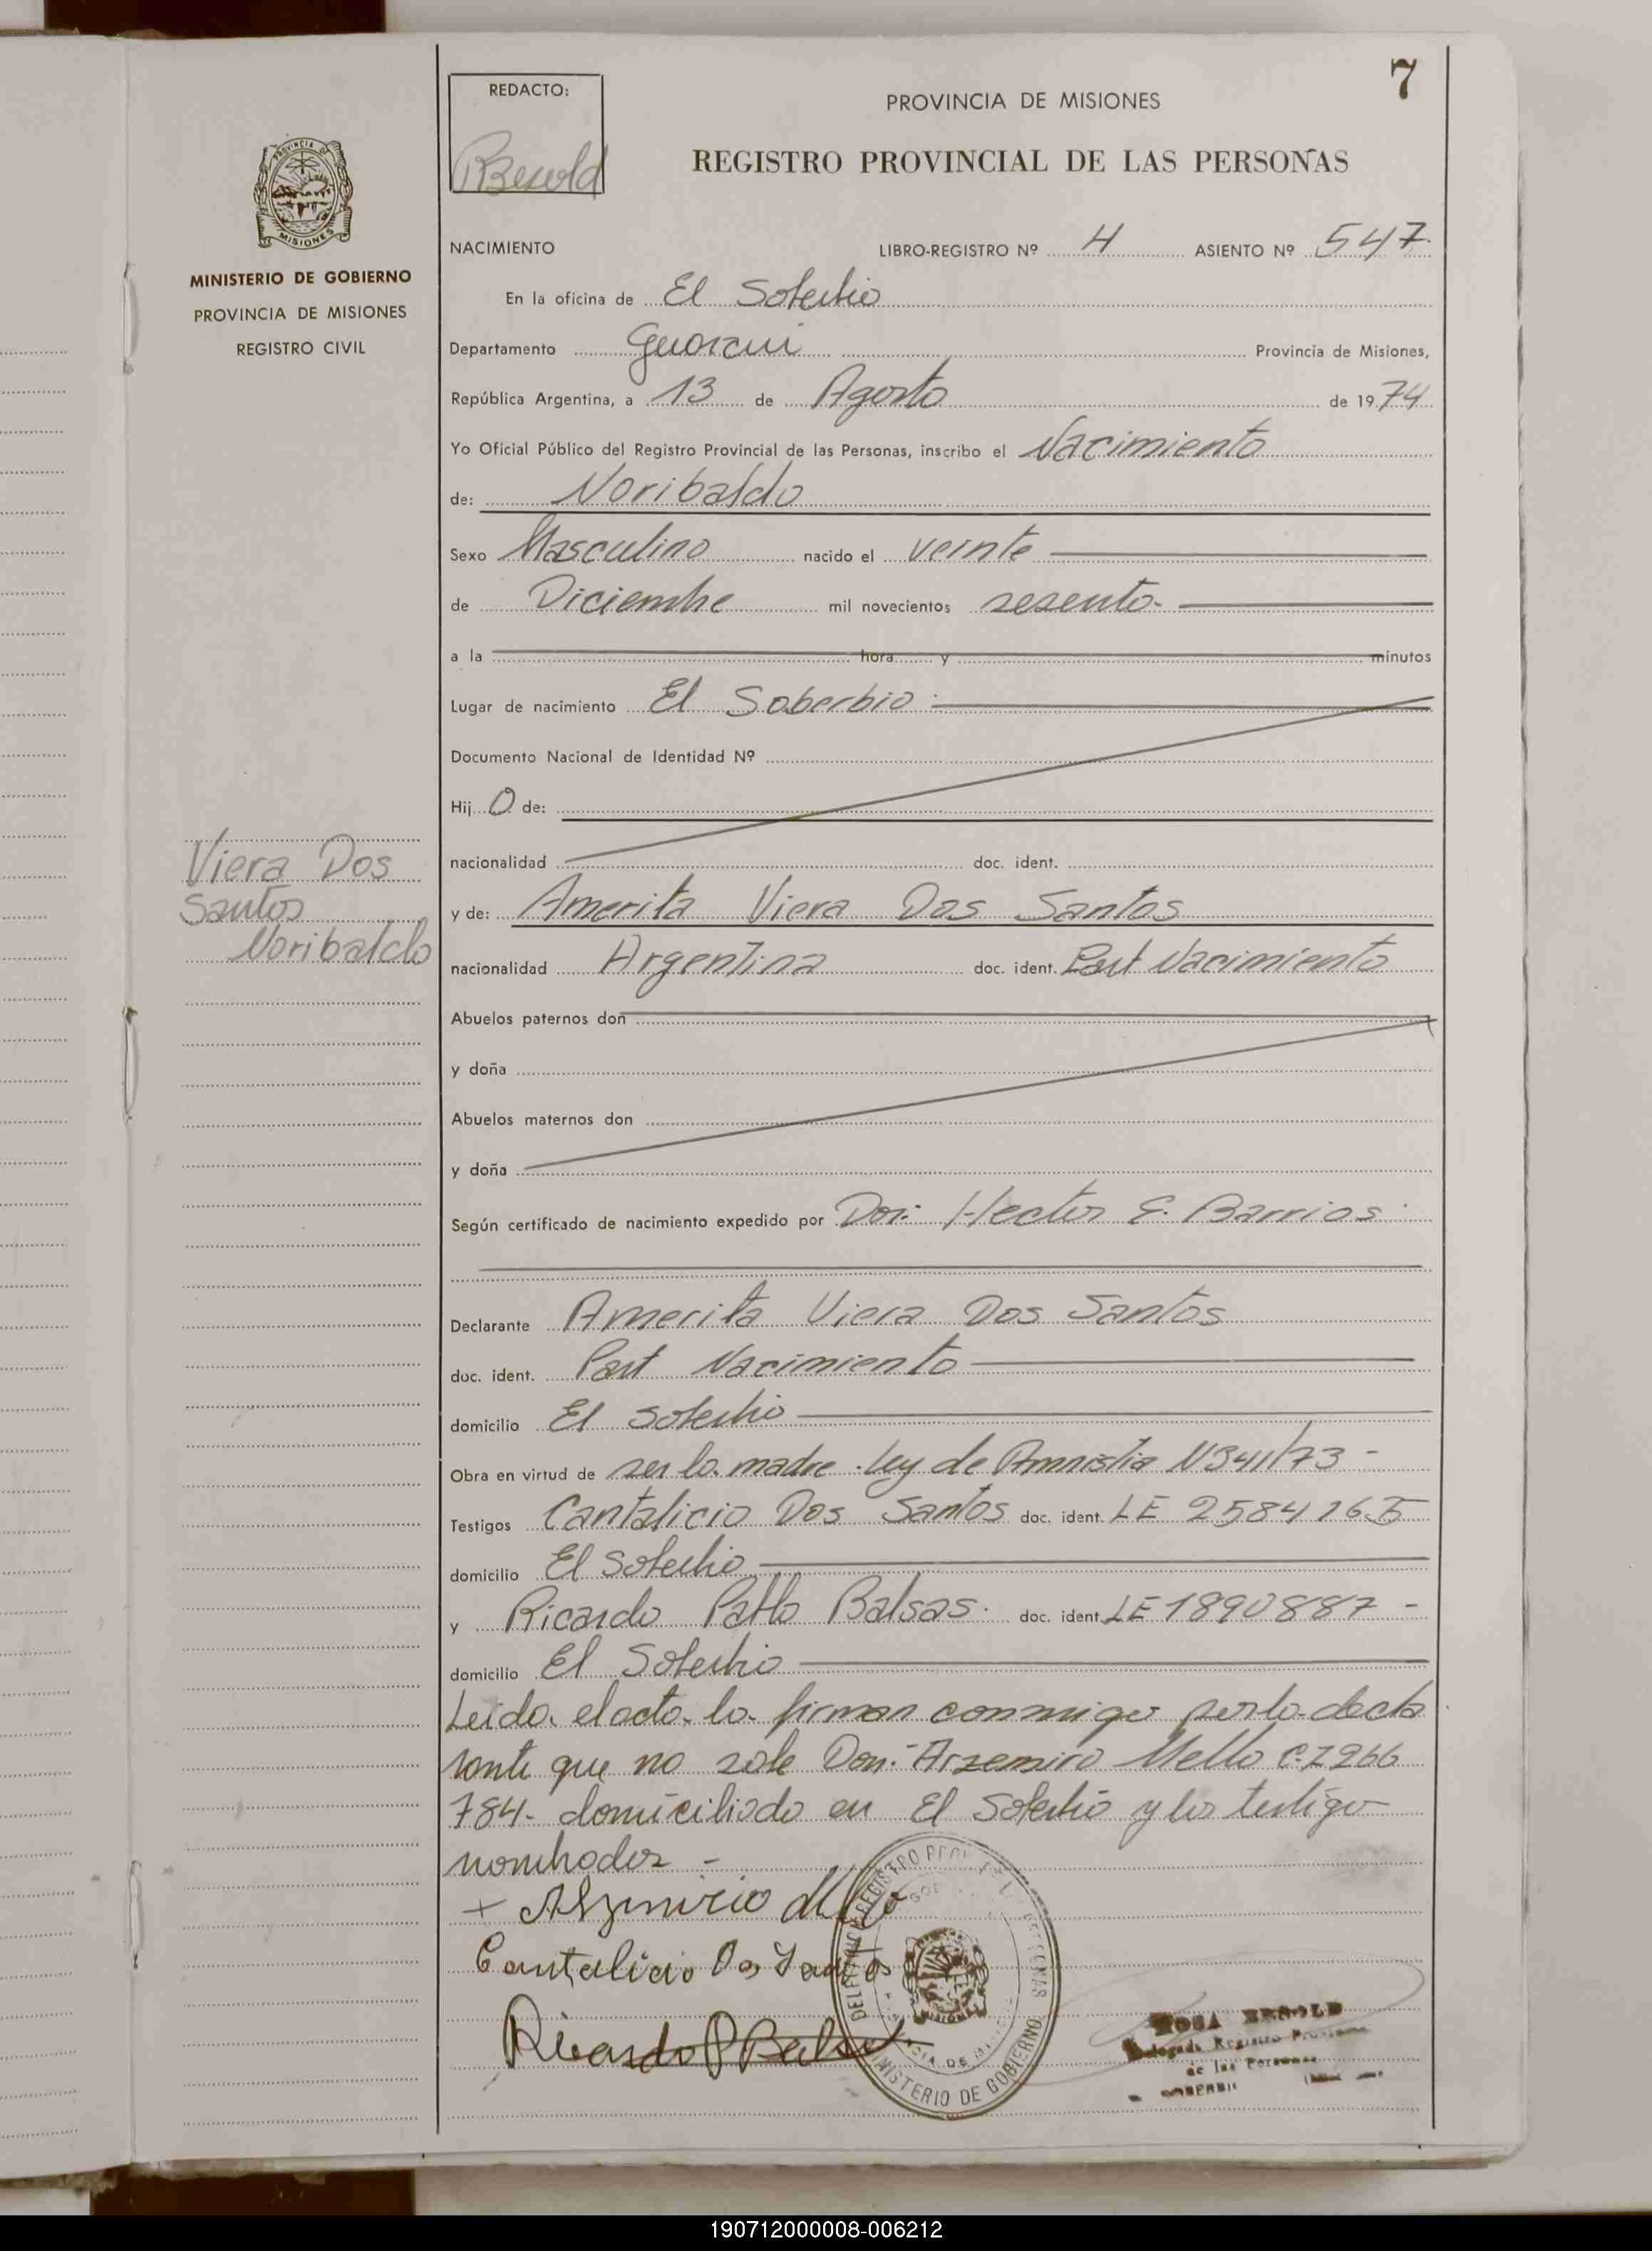 7
REDACTO:
PROVINCIA DE MISIONES
REGISTRO PROVINCIAL DE LAS PERSONAS
NACIMIENTO LIBRO-REGISTRO Nº 4 ASIENTO Nº 547
MINISTERIO DE GOBIERNO
PROVINCIA DE MISIONES
REGISTRO CIVIL
En la oficina de El Soberbio
Departamento Guarani Provincia de Misiones,
República Argentina, a 13 de Agosto de 1974
Yo Oficial Público del Registro Provincial de las Personas, inscribo el Nacimiento
de: Noribaldo
Sexo Masculino nacido el veinte
de Diciembre mil novecientos sesenta
a la hora y minutos
Lugar de nacimiento El Soberbio
Documento Nacional de Identidad Nº
Hij o de:
nacionalidad doc. ident.
Viera Dos
Santos
Noribaldo
y de: Amerita Viera Dos Santos
nacionalidad Argentina doc. ident. Part Nacimiento
Abuelos paternos don
y doña
Abuelos maternos don
y doña
Según certificado de nacimiento expedido por Don: Hector E. Barrios
Declarante Amerita Viera Dos Santos
doc. ident. Part Nacimiento
domicilio El Soberbio
Obra en virtud de ser la madre. Ley de Amnistia N341/73 -
Testigos Cantalicio Dos Santos doc. ident. LE 2584165
domicilio El Soberbio
y Ricardo Pablo Balsas. doc. ident. LE 1890887 -
domicilio El Soberbio
Leida el acta la firman conmigo por la decla
rante que no sabe Don:- Arzemiro Mello C.I 966
784- domiciliado en El Soberbio y los testigos
nombrados -
Cantalicio Dos Santos
Ricardo P Balsa
MINISTERIO DE GOBIERNO
ROSA BEROLD
Delegada Registro Provincial
de las Personas
190712000008-006212